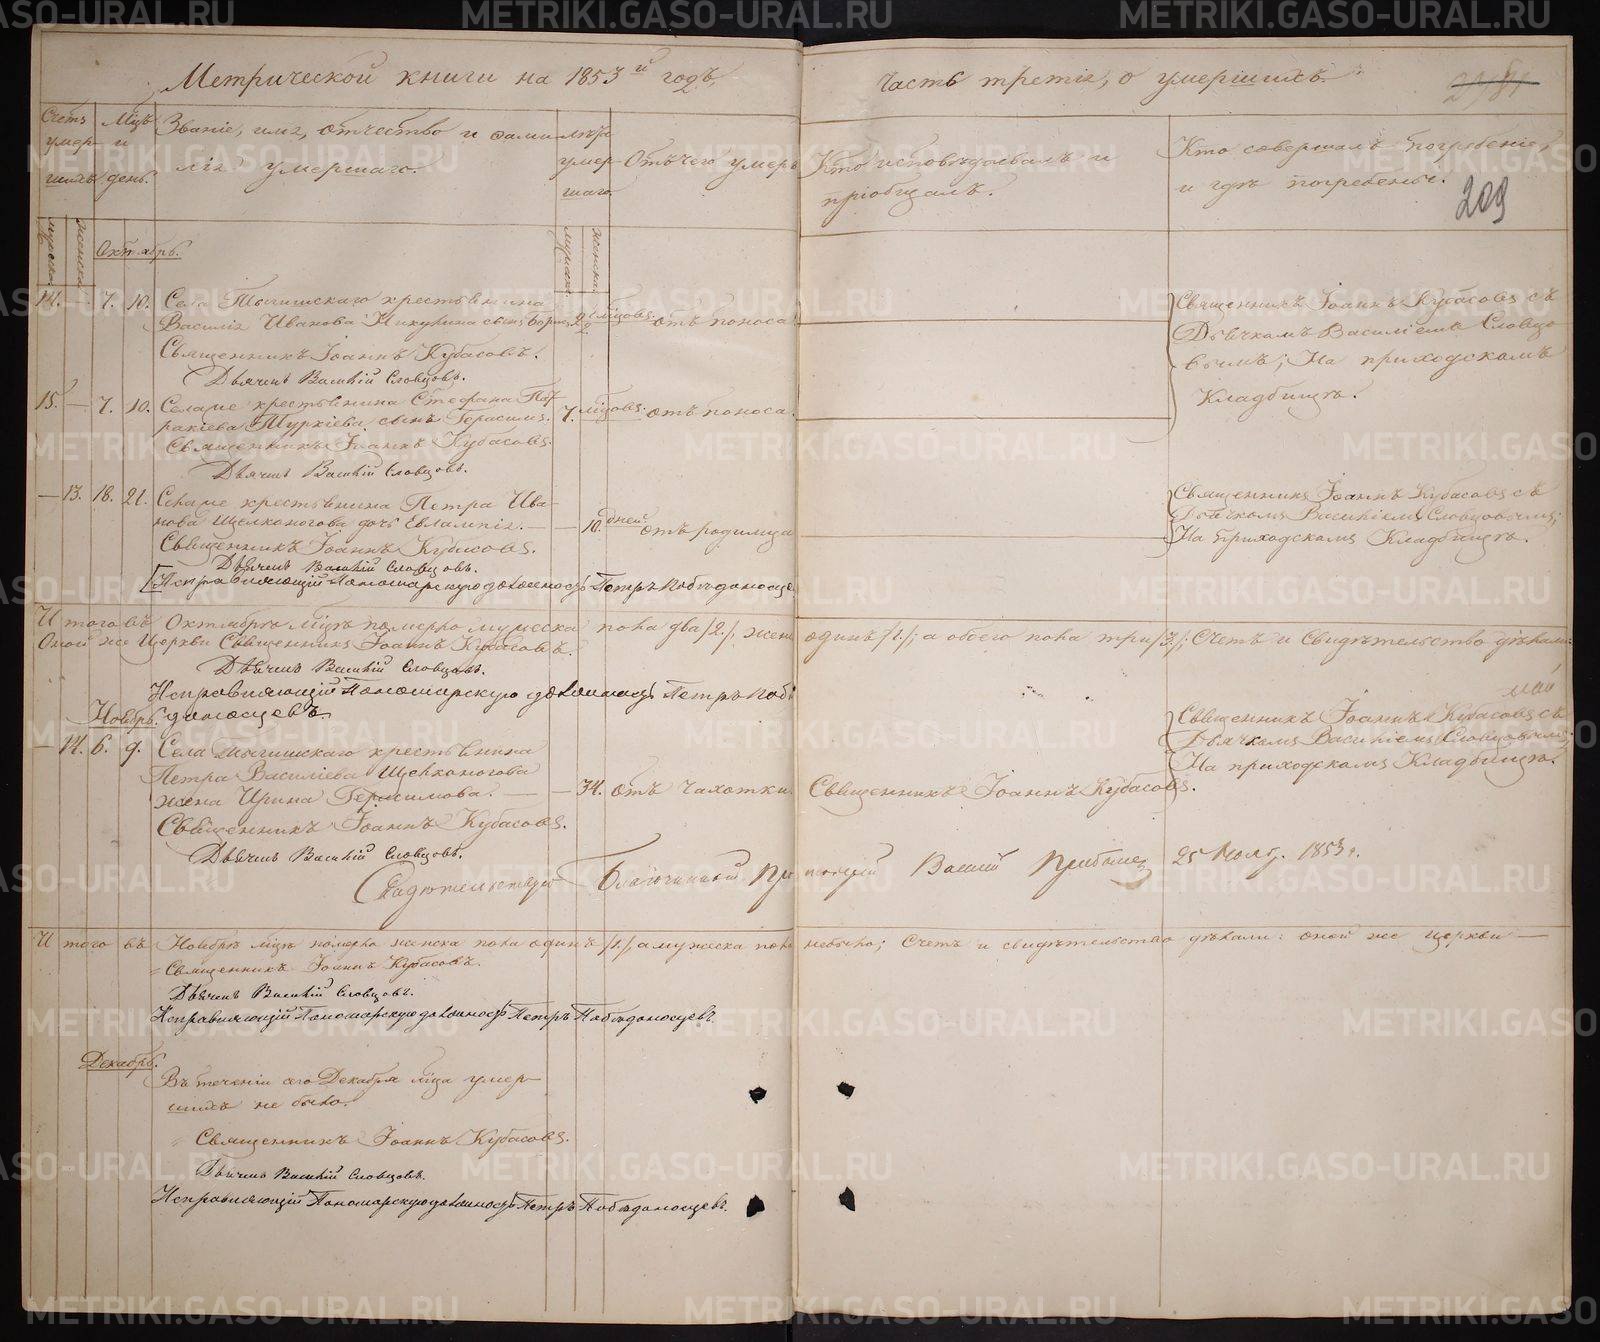 Метрической книги на 1853й годъ,
Часть третія, о умершихъ.
Счетъ умер-шихъ
Мцъ и день.
Званіе, имя, отчество и фами-
лія умершаго.
Лѣта умер-шаго
Отъ чего умеръ
Кто исповѣдовалъ и
пріобщалъ.
Кто совершалъ погребеніе,
и гдѣ погребены.
209
мужска
женска
Октябрь.
мужска
женска
14. — 7. 10. Села крестьянина
Василія Иванова сынъ Борисъ мцовъ отъ поноса
Священникъ Іоаннъ Кубасовъ.
Дьячекъ Василій Словцовъ.
Священникъ Іоаннъ Кубасовъ съ
Дьячкомъ Василіемъ Словцо
вымъ; На приходскомъ
Кладбищѣ.
15. — 7. 10. Села же крестьянина Стефана
сынъ Герасимъ. 7. мцовъ. отъ поноса.
Священникъ Іоаннъ Кубасовъ.
Дьячекъ Василій Словцовъ.
— 13. 18. 21. Села же крестьянина Петра Ива-
нова Щелконогова дочь Евлампія. — — 10. дней отъ родимца
Священникъ Іоаннъ Кубасовъ.
Дьячекъ Василій Словцовъ.
Исправляющій Пономарскую должность Петръ Победоносце
Священникъ Іоаннъ Кубасовъ съ
Дьячкомъ Василіемъ Словцовымъ;
На приходскомъ Кладбищѣ.
Итого въ Октябрѣ мцѣ померло мужеска пола два /2./, жен одинъ /1./; а обоего пола три /3./; Счетъ и свидѣтельство дѣлали:
Оной же Церкви Священникъ Іоаннъ Кубасовъ.
Дьячекъ Василій Словцовъ.
Исправляющій Пономарскую должность Петръ Побѣ
доносцевъ.
Ноябрь.
— 14. 6. 9. Села крестьянина
Петра Василіева Щелконогова
жена Ирина Герасимова. — — 34. отъ чахотки. Священникъ Іоаннъ Кубасовъ.
Священникъ Іоаннъ Кубасовъ.
Дьячекъ Василій Словцовъ.
Священникъ Іоаннъ Кубасовъ съ
Дьячкомъ Василіемъ Словцовымъ;
На приходскомъ Кладбищѣ.
Благочинный 25 Нояб. 1853 г.
Итого въ Ноябрѣ мцѣ померло женска пола одинъ /1./, а мужеска пола небыло; Счетъ и свидѣтельство дѣлали: оной же церкви —
Священникъ Іоаннъ Кубасовъ.
Дьячекъ Василій Словцовъ.
Исправляющій Пономарскую должность Петръ Побѣдоносцевъ.
Декабрь.
Въ теченіи сего Декабря мца умер-
шихъ не было.
Священникъ Іоаннъ Кубасовъ.
Дьячекъ Василій Словцовъ.
Исправляющій Пономарскую должность Петръ Побѣдоносцевъ.
METRIKI.GASO-URAL.RU